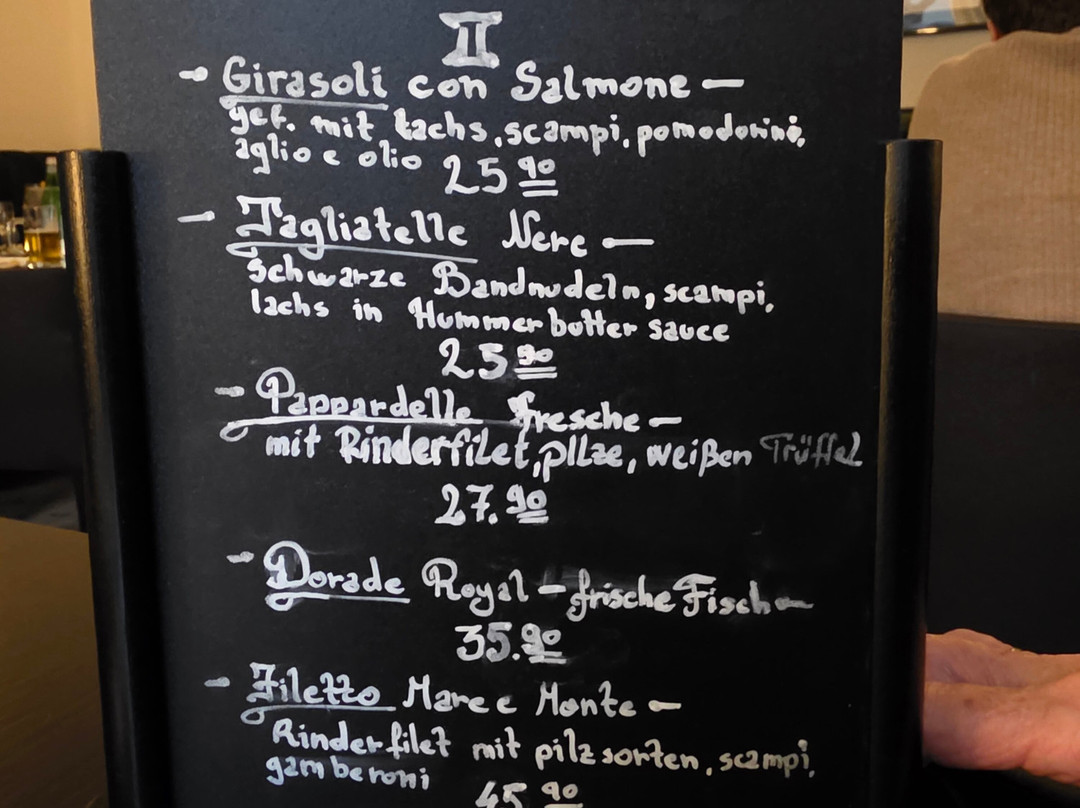 II
- Girasoli con Salmone -
gef. mit Lachs, scampi, pomodorini,
aglio e olio 25 90
- Tagliatelle Nere -
schwarze Bandnudeln, scampi,
lachs in Hummerbutter sauce
25 90
- Pappardelle fresche -
mit Rinderfilet, pilze, weißen Trüffel
27.90
- Dorade Royal - frische Fisch -
35.90
- Filetto Mare e Monte -
Rinderfilet mit pilzsorten, scampi,
gamberoni
45 90